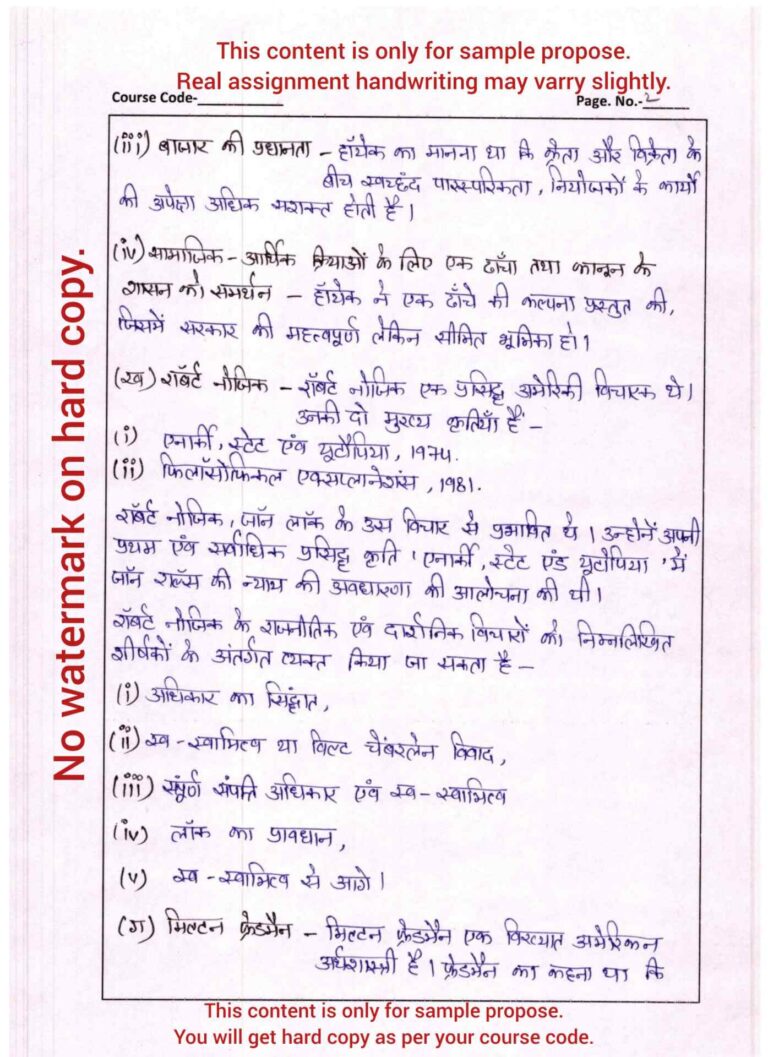 This content is only for sample propose.
Real assignment handwriting may varry slightly.
Course Code-
Page. No.-2
No watermark on hard copy.
(iii) बाजार की प्रधानता - हॉयेक का मानना था कि क्रेता और विक्रेता के
बीच स्वच्छंद पारस्परिकता, नियोजकों के कार्यों
की अपेक्षा अधिक सशक्त होती है।
(iv) सामाजिक - आर्थिक क्रियाओं के लिए एक ढाँचा तथा कानून के
शासन को समर्थन - हॉयेक ने एक ढाँचे की कल्पना प्रस्तुत की,
जिसमें सरकार की महत्वपूर्ण लेकिन सीमित भूमिका हो।
(ख) रॉबर्ट नोजिक - रॉबर्ट नोजिक एक प्रसिद्ध अमेरिकी विचारक थे।
उनकी दो मुख्य कृतियाँ हैं -
(i) एनार्की, स्टेट एंव यूटोपिया, 1974.
(ii) फिलॉसोफिकल एक्सप्लानेशंस, 1981.
रॉबर्ट नोजिक, जॉन लॉक के उस विचार से प्रभावित थे। उन्होनें अपनी
प्रथम एंव सर्वाधिक प्रसिद्ध कृति 'एनार्की, स्टेट एंड यूटोपिया' में
जॉन रॉल्स की न्याय की अवधारणा की आलोचना की थी।
रॉबर्ट नोजिक के राजनीतिक एंव दार्शनिक विचारों को निम्नलिखित
शीर्षकों के अंतर्गत व्यक्त किया जा सकता है -
(i) अधिकार का सिद्धांत,
(ii) स्व - स्वामित्व या विल्ट चैंबरलेन विवाद,
(iii) संपूर्ण संपत्ति अधिकार एंव स्व - स्वामित्व
(iv) लॉक का प्रावधान,
(v) स्व - स्वामित्व से आगे।
(ग) मिल्टन फ्रेडमैन - मिल्टन फ्रेडमैन एक विख्यात अमेरिकन
अर्थशास्त्री है। फ्रेडमैन का कहना था कि
This content is only for sample propose.
You will get hard copy as per your course code.